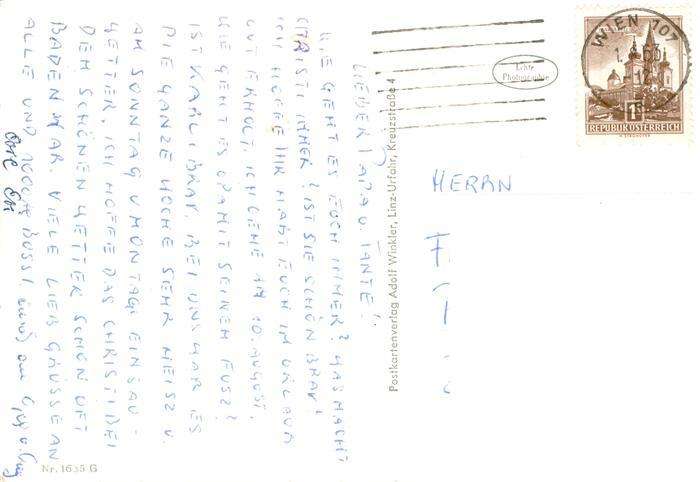 LIEBER PAPA U. TANTE!
WIE GEHT ES EUCH IMMER? WAS MACHT
CHRISTI IMMER? IST SIE SCHÖN BRAV?
ICH HOFFE IHR HABT EUCH IM URLAUB
GUT ERHOLT. ICH GEHE AM 10. AUGUST.
WIE GEHT ES OPA MIT SEINEM FUSZ?
IST KARLI BRAV. BEI UNS WAR ES
DIE GANZE WOCHE SEHR HEISZ U.
AM SONNTAG U MONTAG EIN SAU-
WETTER. ICH HOFFE DAS CHRISTI BEI
DEM SCHÖNEN WETTER SCHÖN OFT
BADEN WAR. VIELE LIEBE GRÜSSE AN
ALLE UND NOCH BUSSI
Postkartenverlag Adolf Winkler, Linz-Urfahr, Kreuzstraße 4
Echte
Photographie
WIEN 107
1
REPUBLIK ÖSTERREICH
HERRN
Nr. 1635 G